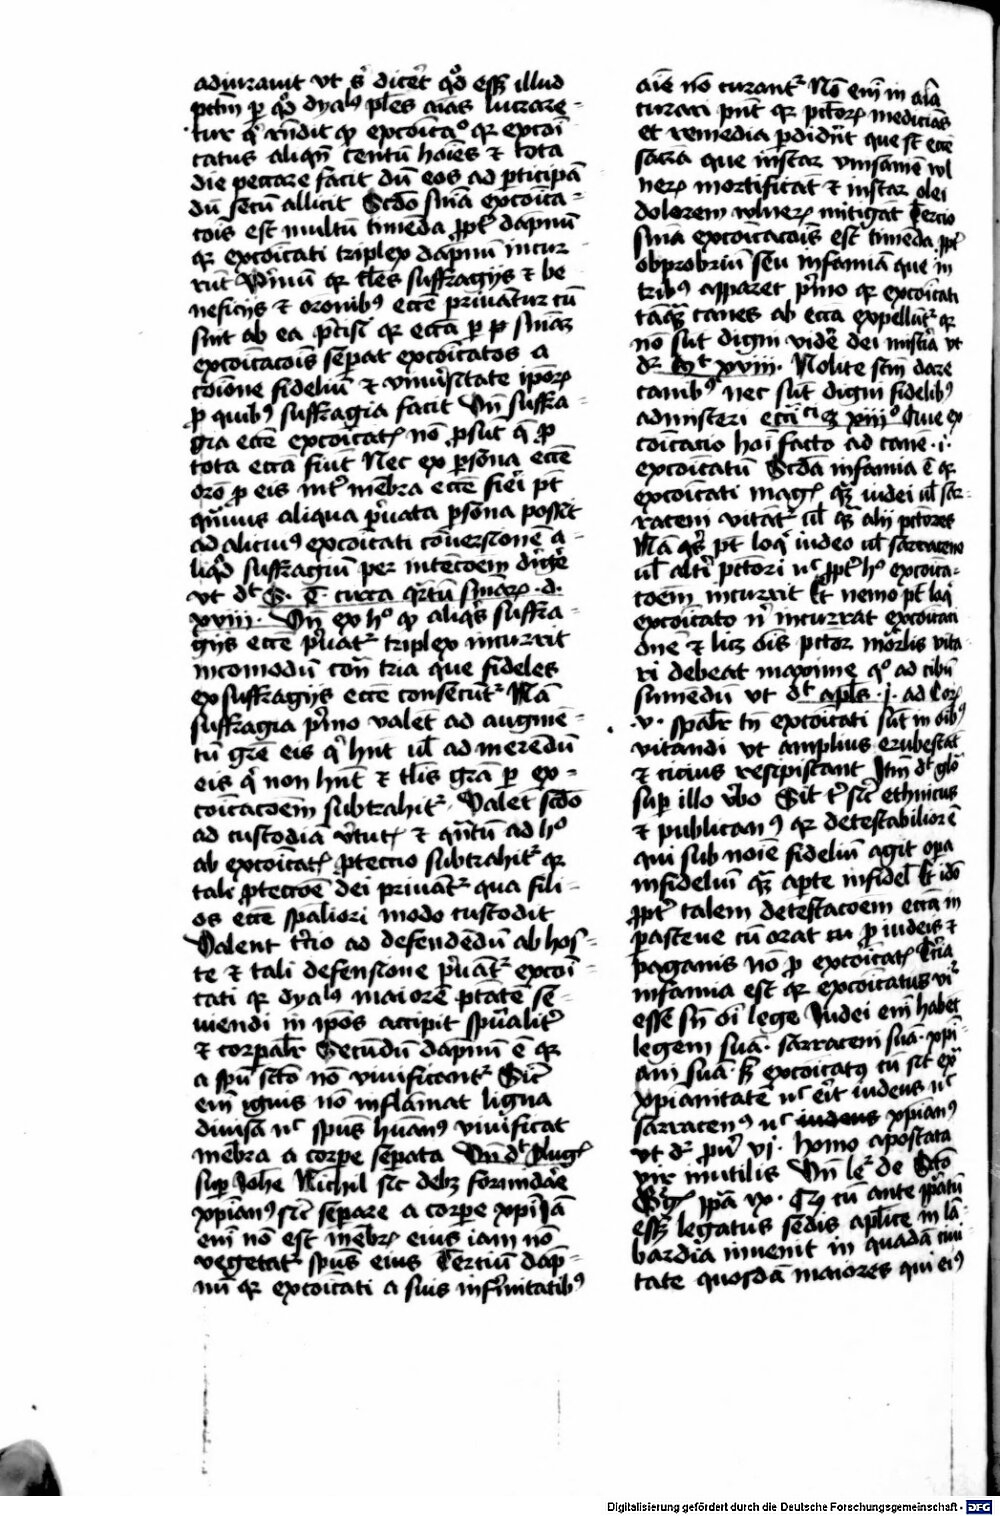 adiurauit vt sʳ diceret qd̄ ess; illud
pctm̄ p qd̄ dyal̄us pl̄es aīas lucrare-
tur qͥ rn̄dit qp excōicaᵒ qr excōi
catus aliqn̄ centū hoīes & tota
die peccare facit dū eos ad pticipā
dū secū allicit Scd̄o sn̄ia excōica-
cōis est multū timēda ppt̄ dāpnū
qr excōicati triplex dāpnū incur
rūt pͥmū qr tl̄es suffragijs & be
neficijs & or̄onibus eccē priuātur cū
sint ab ea pͥcisi qr eccīa p p sn̄iaȝ
excōicacōis sepat excōicatos a
cōione fideliū & vniuͥsitate ipōꝝ
p quibus suffragia facit Vn̄ suffra-
gia eccē excōicatꝭ nō psūt q̄ p
tota eccīa fiūt Nec ex psōna eccē
or̄o p eis intʳ mēbra eccē fieri pt̄
qͣmuis aliqua pͥuata psōna possēt
ad alicuius excōicati cōuersionē a-
liqd̄ suffragiū per intēcōem dirige
vt dᵗ S. T. circa qrtū sn̄iaꝝ .d.
xviii. Vn̄ ex hᵒ qp aliqͥs suffra-
gijs eccē pͥuatʳ triplex incurrit
incomodū con̄ tria que fideles
ex suffragijs eccē consecūtʳ Nā
suffragia pͥmo valēt ad augmē-
tū grē eis qͥ hn̄t ul̄ ad merēdū
eis qͥ non hn̄t & tl̄is grā p ex-
cōicacōem subtrahitʳ. Valēt scd̄o
ad custodiā vͥtutꝭ & qn̄tū ad hᵒ
ab excōicatꝭ ptectio subtrahitʳ qr
tali ptectōe dei priuātʳ qua fili-
os eccē spāliori modo custodit
Valent tͥcio ad defendēdū ab hos-
te & tali defensione pͥuātʳ excōi
cati qr dyal̄us maiorē ptātē se-
uiendi in ipōs accipit spūaliter
& corpālr̄ Secundū dāpnū ē qr
a spū scō nō viuificantʳ Sicᵗ
enī ignis nō inflāmat ligna
diuisa nᶜ spūs hūanus viuificat
mēbra a corpe sepata Vn̄ dᵗ Augꝰ
sup Johē Nichil sic debȝ formidare
xpīanus sicᵗ separe a corpe xpi Jā
enī nō est mēbrꝫ eius iam nō
vegetatʳ spūs eius Tertiū dāp-
nū qr excōicati a suis infirmitatibus
aīe nō curantʳ Nō enī in aīa
curari pn̄t qr pctōꝝ medicinas
et remedia pdidūt que st̄ eccē
sacra que instar vnīsamē vl
neꝝ mortificāt & instar olei
dolorem vlneꝝ mitigāt Tercio
sn̄ia excōicacōis est timēda ppt̄
obprobriū seu infamiā que in
tribus apparet pͥmo qr excōicati
tāqͣ canes ab eccīa expellūtʳ qr
nō sūt digni vidē dei misͥia vt
dʳ Mᵗ xviii. Nolite scm̄ dare
canibus nec sūt digni fidelibus
admisceri eccīᶜⁱ xiiiᵒ Que ex
cōicatio hoī facto ad cane .i.
excōicatū Scd̄a infamia ē qr
excōicati magꝭ qͣ iudei ul̄ sar-
raceni vitātʳ ul̄ qͣ alij pctōres
Nā qͥs pt̄ loqͥ iudeo ul̄ sarraceno
ul̄ altͥ pctōri nᶜ ppt̄ hᵒ excōica-
cōem incurrit Et nemo pt̄ loqͥ
excōicato nͥ incurrat excōicati
onē & licȝ ōis pctor mōrlis vita-
ri debeat maxime qᵒ ad cibū
sumēdū vt dᵗ apl̄s .j. ad Coꝝ
.v. spālr̄ tn̄ excōicati sūt in ōibus
vitandi vt amplius erubescāt
& cicius resipiscant Itm̄ dᵗ glō
sup illo vͥbo Sit tͥ sicᵗ ethnicus
& publicanus qr detestabilior ē
qui sub noīe fideliū agit opa
infideliū qͣ apte infidel̄ Et id̄o
ppt̄ talem detestacōem eccīa in
pasceue cū orat cū p iudeis &
paganis nō p excōicatꝭ Tͥcia
infamia est qr excōicatus viͬ
esse sn̄ oī lege Judei enī habēt
legem suā . sarraceni suā . xpī
ani suā . sꝫ excōicatus cū sit exͣ
xpīanitatē nᶜ erit iudeus nᶜ
sarracenus nᶜ iudeus xpīanus
vt dʳ puͥ vj. homo apostata
vir inutilis Vn̄ leʳ de Scō
Gꝭg ipā ix. Cū cū ante ppātū
essȝ legatus sedis apl̄ice in lā-
bardia inuenit in quadā ciui
tate quosdā maiores qui eius
Digitalisierung gefördert durch die Deutsche Forschungsgemeinschaft - DFG